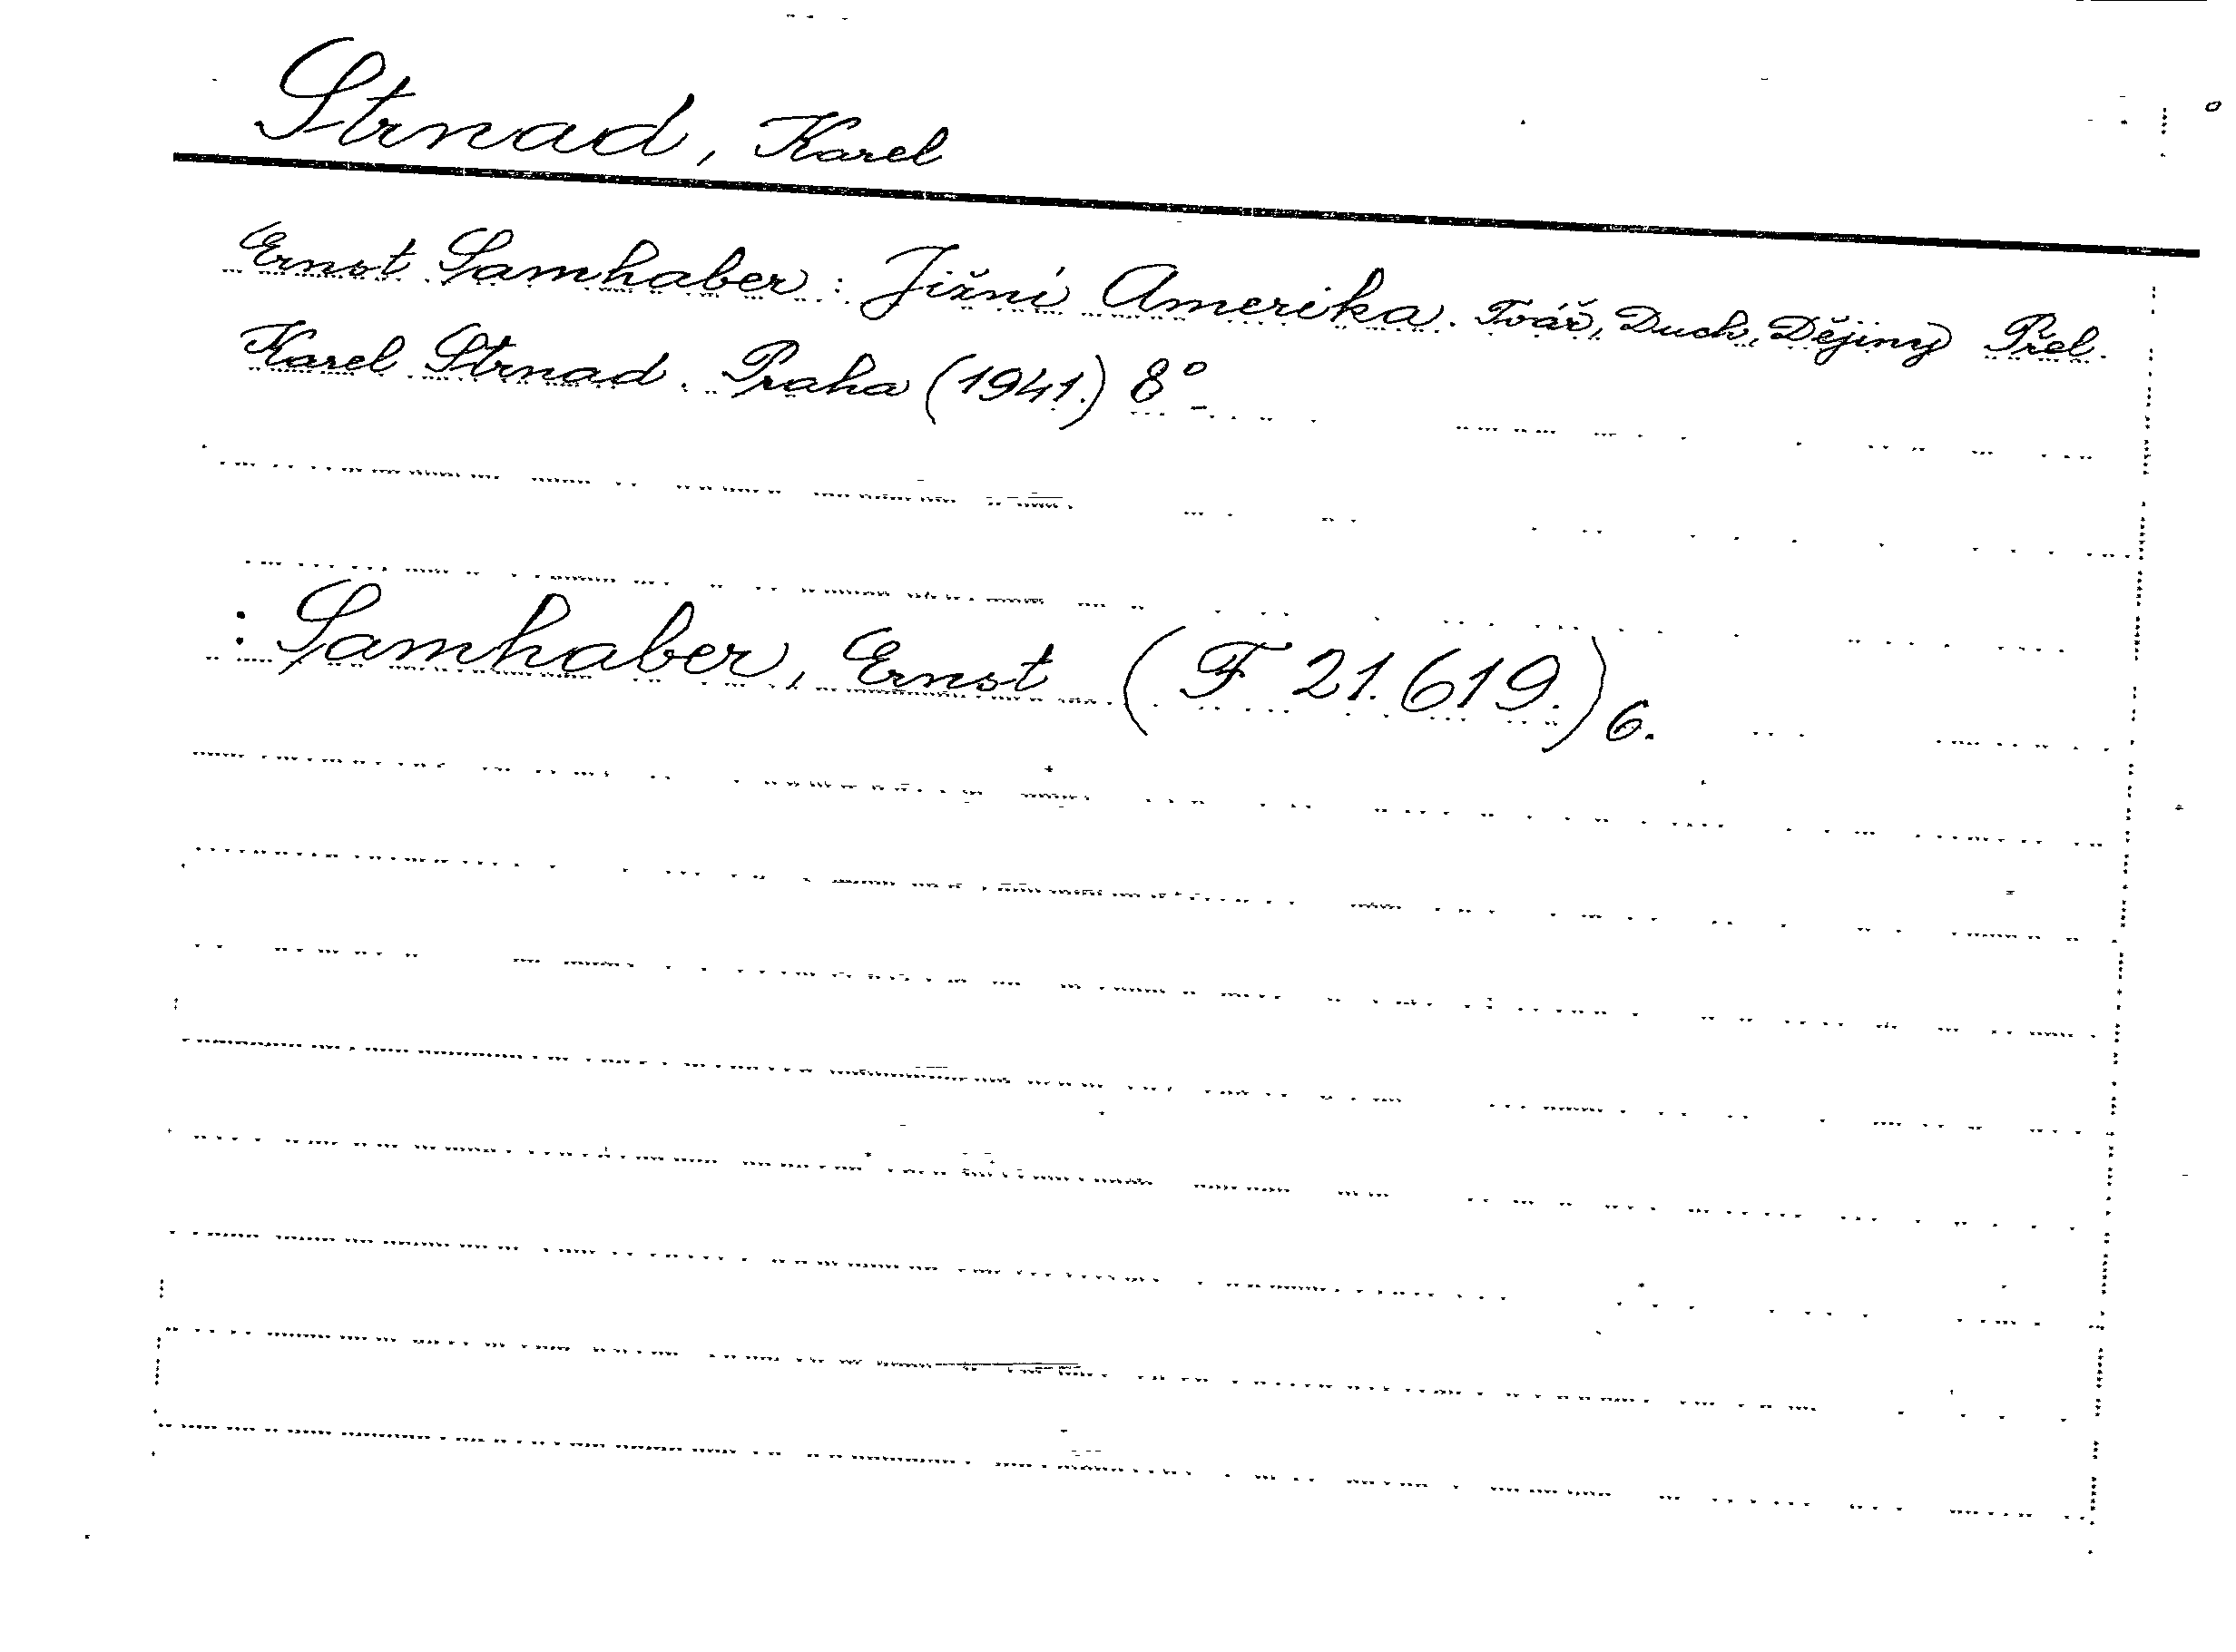 Strnad, Karel
Ernst Samhaber: Jižní Amerika. Tvář, Duch, Dějiny Přel.
Karel Strnad. Praha (1941.) 8°
: Samhaber, Ernst (F 21.619.) 6.